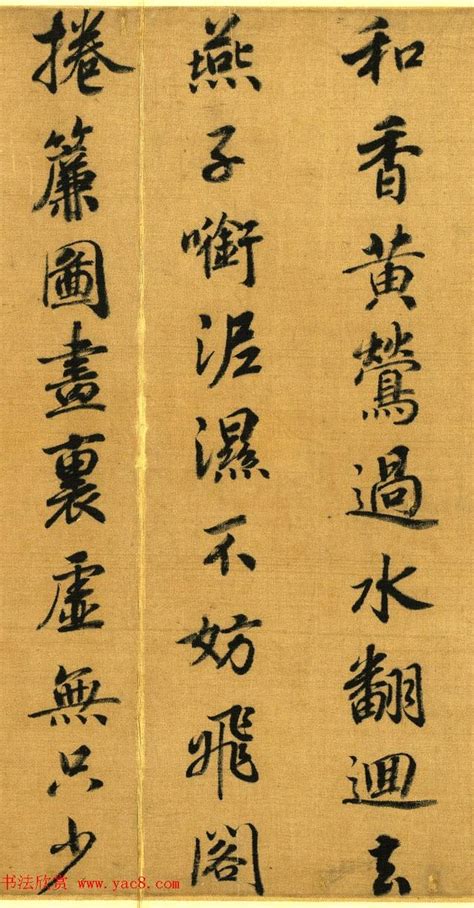 和香黄鶯過水翻迴去
燕子嘴銜泥濕不妨飛閣
捲簾圖畫裏虛無只少
书法欣赏 www.yac8.com